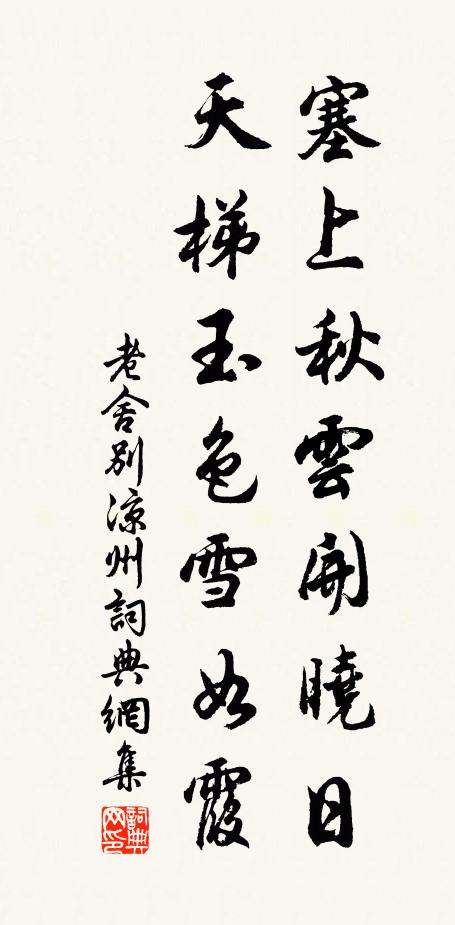 塞上秋雲開曉日
天梯玉色雪如霞
老舍別涼州詞典網集
詞典网印